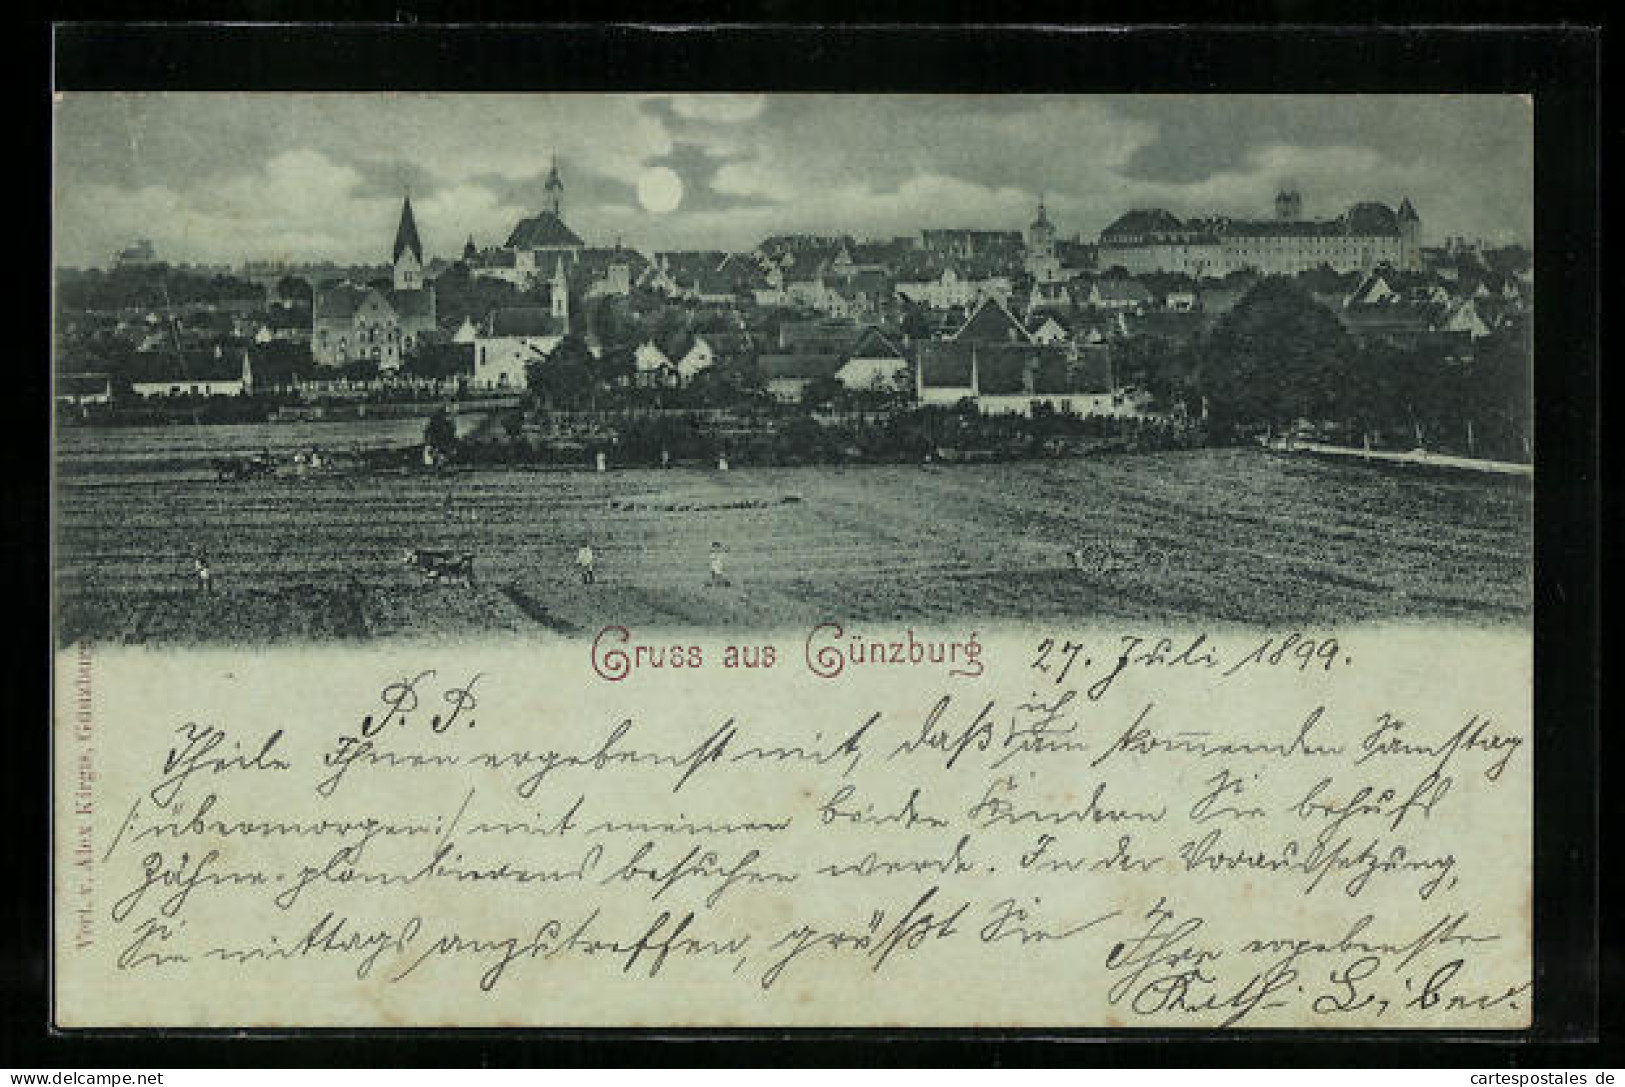 Gruss aus Günzburg
27. Juli 1899.
P. P.
Theile Ihnen ergebenst mit, daß ich am kommenden Samstag
/: übermorgen :/ mit meinen beiden Kindern Sie behufs
Zähne-plombierens besuchen werde. In der Voraussetzung,
Sie mittags anzutreffen, grüßt Sie
Ihre ergebenste
Kath.
Verl. v. Alex Kirgis, Günzburg
delcampe.net
cartespostales de